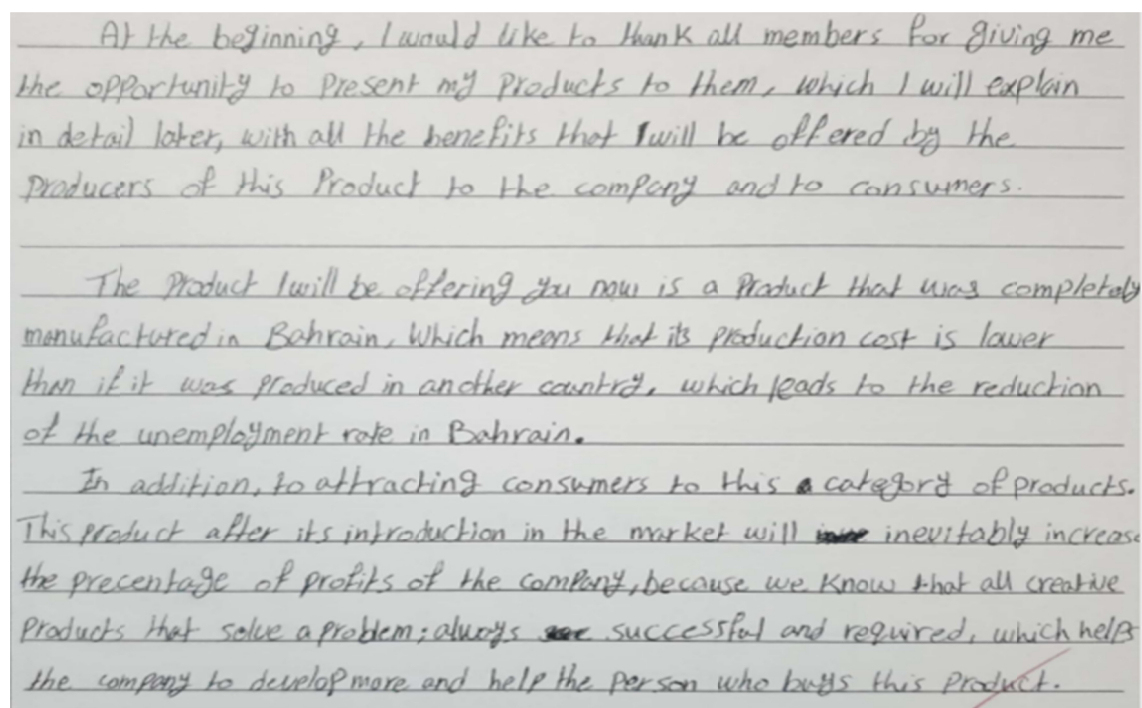 At the beginning, I would like to thank all members for giving me
the opportunity to present my products to them, which I will explain
in detail later, with all the benefits that I will be offered by the
producers of this product to the company and to consumers.
The product I will be offering you now is a product that was completely
manufactured in Bahrain, Which means that its production cost is lower
than if it was produced in another country, which leads to the reduction
of the unemployment rate in Bahrain.
In addition, to attracting consumers to this category of products.
This product after its introduction in the market will inevitably increase
the precentage of profits of the company, because we know that all creative
products that solve a problem; always successful and required, which helps
the company to develop more and help the person who buys this product.